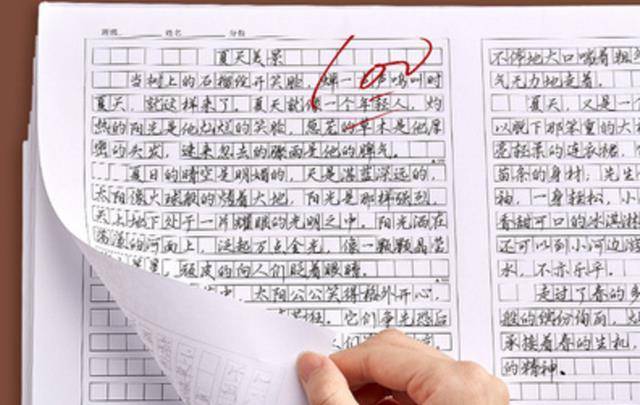 班级 姓名 分数
夏天美景
100
当树上的石榴绽开笑脸，蝉一声声鸣叫时
夏天，就这样来了。夏天就像一个年轻人，灼
热的阳光是他灿烂的笑脸，葱茏的草木是他厚
密的头发，速来忽去的骤雨是他的脾气。
夏日的晴空是明晴的，天是湛蓝深远的，
太阳像火球般的烤着大地，阳光是那样强烈，
天上地下处于一片耀眼的光明之中。阳光洒在
荡漾的河面上，泛起万点金光，像一颗颗晶莹
顽皮的向人们眨着眼睛。
太阳公公笑得格外开心，
它们争先恐后
人们
不停地大口喘着粗
气无力地走着。
夏天，又是一
以脱下那笨重的大
亮轻柔的连衣裙，
苗条的身材；先生
袖，一身轻松，小
香甜可口的冰淇淋
还可以到小河边
水，不亦乐乎。
走过了春的
般的缤纷绚丽，
承接着春的生机，
的精神。